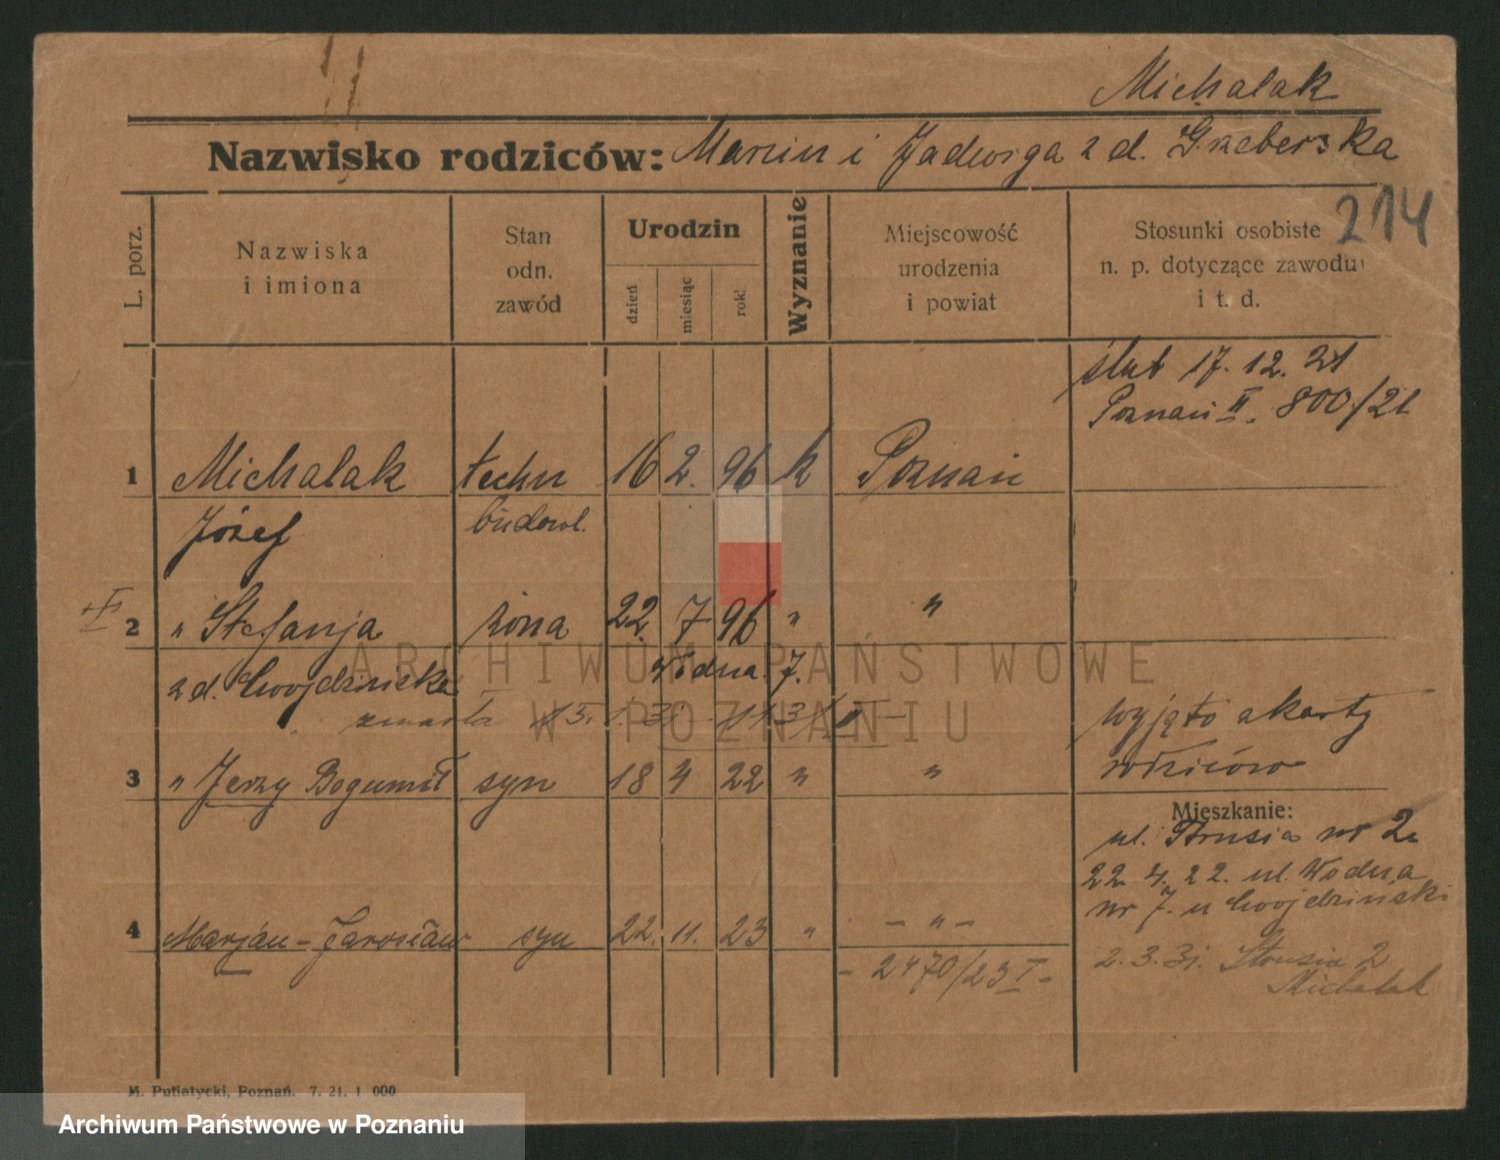 Michalak
Nazwisko rodziców: Marcin i Jadwiga z d. Grzeberska
214
L. porz.
Nazwiska i imiona
Stan odn. zawód
Urodzin
dzień
miesiąc
rok
Wyznanie
Miejscowość urodzenia i powiat
Stosunki osobiste n. p. dotyczące zawodu i t. d.
ślub 17. 12. 21
Poznań II. 800/21
1 Michalak techn 16 2. 96 k Poznań
Józef budowl.
2 " Stefanja żona 22. 7 96 " "
z d. Gwojdzińska Wodna 7.
zmarła 15. 1. 31
wyjęto z karty
rodziców
3 " Jerzy Bogumił syn 18 4 22 " "
Mieszkanie:
ul. Strusia nr 2
22 4. 22. ul. Wodna
nr 7. u Gwojdziński
4 Marjan - Jarosław syn 22. 11. 23 " - " -
- 2470/23 I -
2. 3. 31. Strusia 2
Michalak
M. Putiatycki, Poznań. 7. 21. 1 000
ARCHIWUM PAŃSTWOWE
W POZNANIU
Archiwum Państwowe w Poznaniu